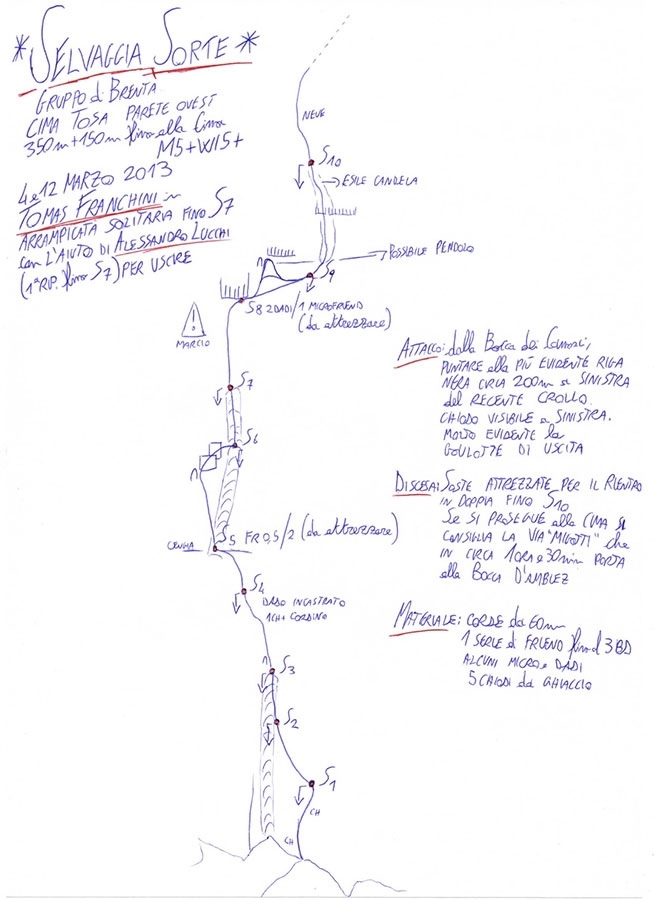 * SELVAGGIA SORTE *
GRUPPO di BRENTA
CIMA TOSA PARETE OVEST
350m + 150m fino alla Cima
M5+ WI5+
4 e 12 MARZO 2013
TOMAS FRANCHINI in
ARRAMPICATA SOLITARIA FINO S7
con L'AIUTO DI ALESSANDRO LUCCHI
(1ª RIP. fino S7) PER USCIRE
NEVE
S10
ESILE CANDELA
POSSIBILE PENDOLO
S9
S8 2 DADI/1 MICROFRIEND
(da attrezzare)
!
MARCIO
S7
S6
CENGIA
S5 FR 0,5/2 (da attrezzare)
S4
DADO INCASTRATO
1CH+ CORDINO
S3
S2
S1
CH
CH
ATTACCO: dalla Bocca dei Camosci,
PUNTARE alla PIÙ EVIDENTE RIGA
NERA CIRCA 200m a SINISTRA
del RECENTE CROLLO.
CHIODO VISIBILE a SINISTRA.
MOLTO EVIDENTE la
GOULOTTE DI USCITA
DISCESA: SOSTE ATTREZZATE PER IL RIENTRO
IN DOPPIA FINO S10
SE SI PROSEGUE alla CIMA SI
CONSIGLIA LA VIA "MIGOTTI" che
IN CIRCA 1ORA e 30min PORTA
alla BOCCA D'AMBIEZ
MATERIALE: CORDE da 60m
1 SERIE di FRIEND fino al 3 BD
ALCUNI MICRO e DADI
5 CHIODI da GHIACCIO